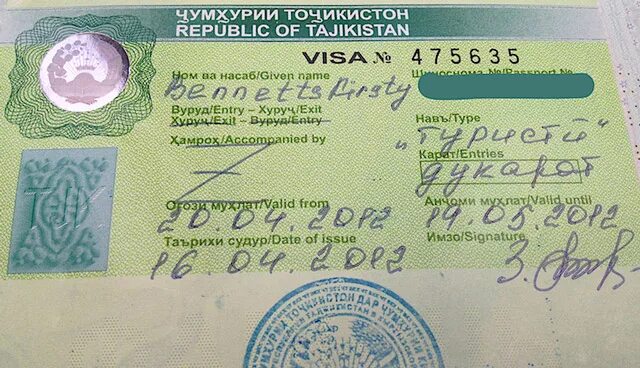 ҶУМҲУРИИ ТОҶИКИСТОН
REPUBLIC OF TAJIKISTAN
VISA № 475635
Ном ва насаб/Given name
Шиноснома №/Passport №
Bennetts Kirsty
Вуруд/Entry - Хуруҷ/Exit
Хуруҷ/Exit - Вуруд/Entry
Навъ/Type
Ҳамроҳ/Accompanied by
"туристӣ"
Карат/Entries
дукарат
Оғози муҳлат/Valid from
Анҷоми муҳлат/Valid until
20.04.2012
19.05.2012
Таърихи судур/Date of issue
Имзо/Signature
16.04.2012
ТОҶИКИСТОН ДАР ҶУМҲУРИИ